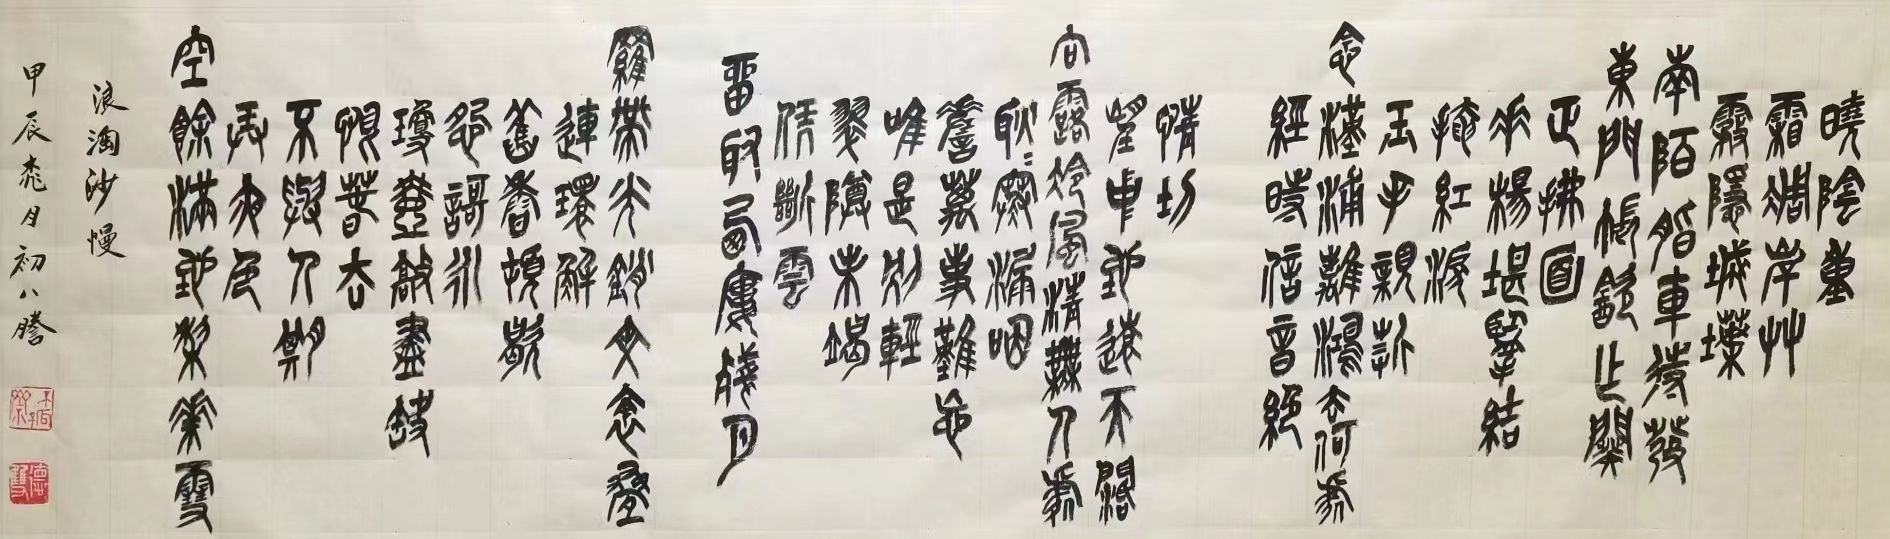 曉陰重
霜凋岸艸
霧隱城堞
南陌脂車待發
東門帳飲乍闋
正拂面
垂楊堪攬結
掩紅淚
玉手親折
念漢浦離鴻去何許
經時信音絕
情切
望中地遠天闊
向露冷風清無人處
耿〻寒漏咽
嗟萬事難忘
唯是別輕
翠樽未竭
憑斷雲
留取西樓殘月
羅帶光銷文衾疊
連環解
舊香頓歇
怨謌永
瓊壺敲盡缺
恨春去
不與人期
弄夜色
空餘滿地梨花雪
浪淘沙慢
甲辰桃月初八謄